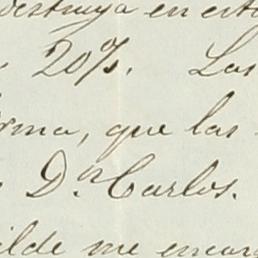 destruya en este
20%. Las
rma, que las
Dn Carlos.
ilde me encar